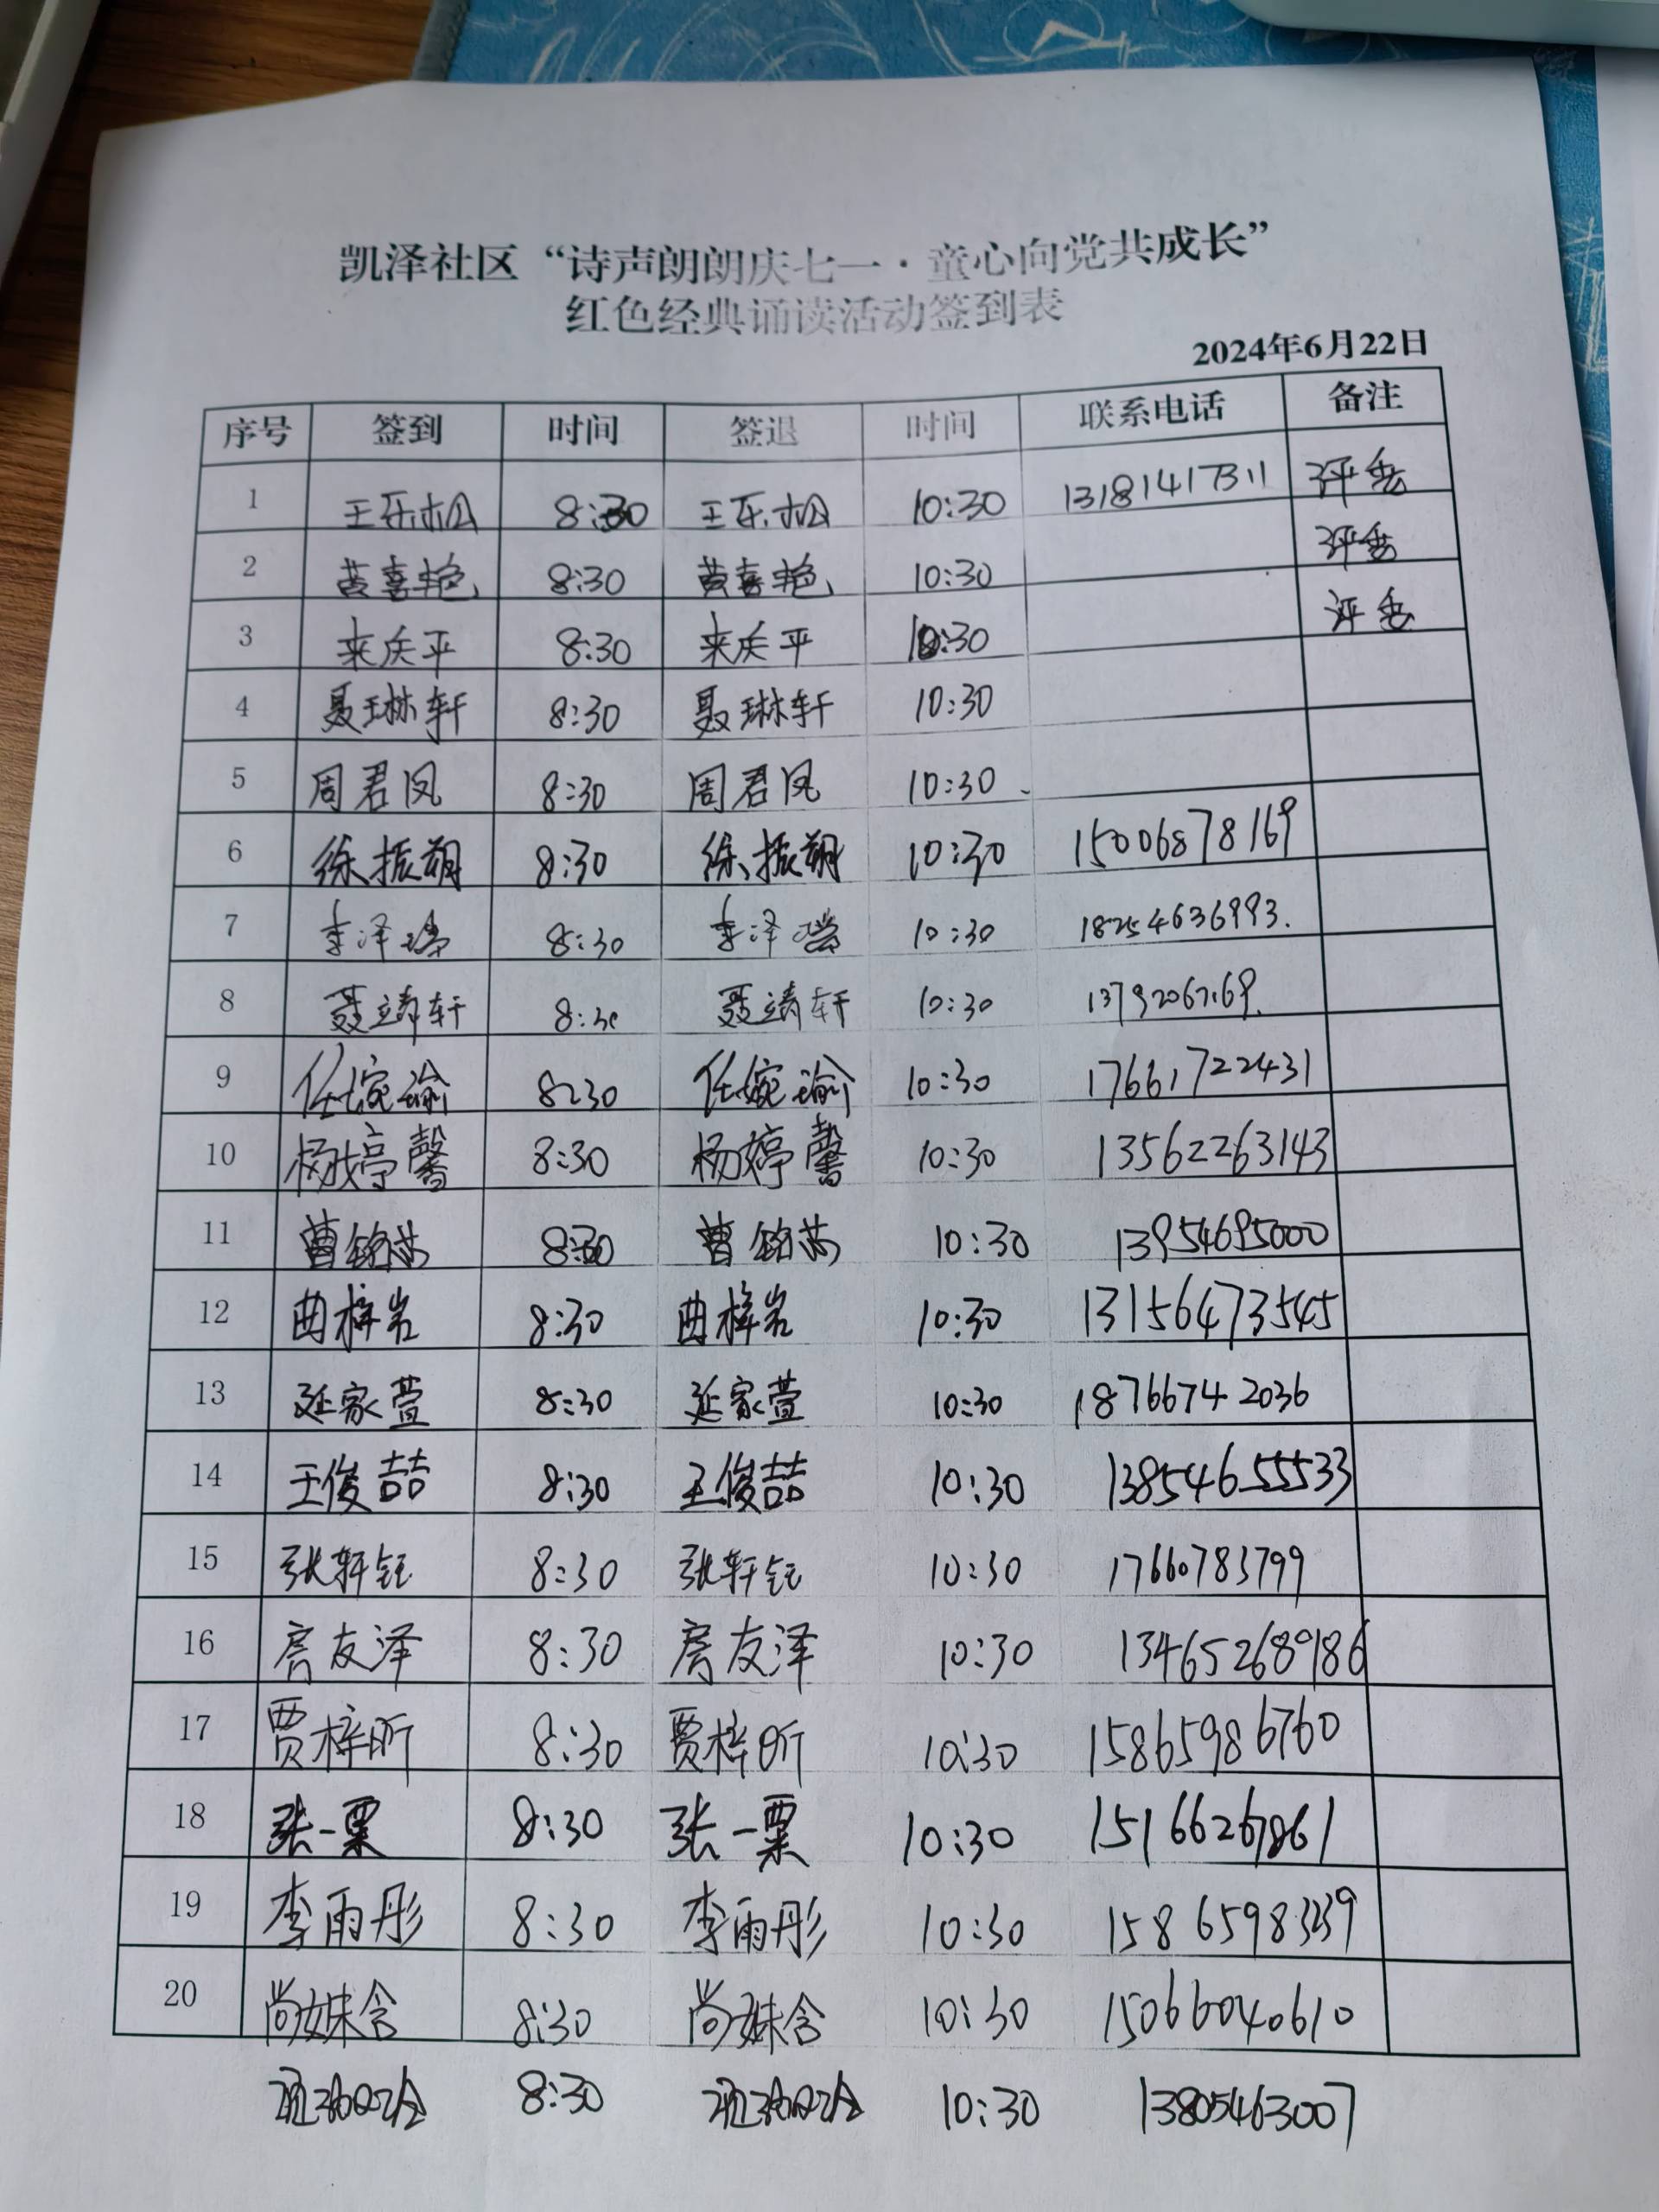 凯泽社区“诗声朗朗庆七一·童心向党共成长”
红色经典诵读活动签到表
2024年6月22日
序号 签到 时间 签退 时间 联系电话 备注
1 王乐松 8:30 王乐松 10:30 13181417311 评委
2 黄喜艳 8:30 黄喜艳 10:30 评委
3 来庆平 8:30 来庆平 10:30 评委
4 聂琳轩 8:30 聂琳轩 10:30
5 周君凤 8:30 周君凤 10:30
6 徐振翔 8:30 徐振翔 10:30 15006878169
7 李泽瑞 8:30 李泽瑞 10:30 18254636993.
8 聂靖轩 8:30 聂靖轩 10:30
9 任婉瑜 8:30 任婉瑜 10:30 17661722431
10 杨婷馨 8:30 杨婷馨 10:30 13562263143
11 8:30 10:30 13954695000
12 曲梓岩 8:30 曲梓岩 10:30 13156473545
13 延家萱 8:30 延家萱 10:30 18766742036
14 王俊喆 8:30 王俊喆 10:30 13854655533
15 张轩钰 8:30 张轩钰 10:30 17660783799
16 房友泽 8:30 房友泽 10:30 13465268986
17 贾梓昕 8:30 贾梓昕 10:30 15865986760
18 张一粟 8:30 张一粟 10:30 15166267861
19 李雨彤 8:30 李雨彤 10:30 15865983239
20 尚姝含 8:30 尚姝含 10:30 15066040610
8:30 10:30 13805463007